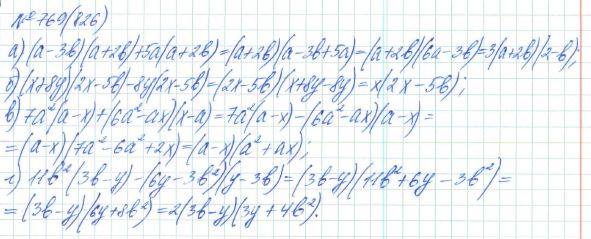 №769(826)
а) (a-3b)(a+2b)+5a(a+2b)=(a+2b)(a-3b+5a)=(a+2b)(6a-3b)=3(a+2b)(2-b);
б) (x+8y)(2x-5b)-8y(2x-5b)=(2x-5b)(x+8y-8y)=x(2x-5b);
в) 7a²(a-x)+(6a²-ax)(x-a)=7a²(a-x)-(6a²-ax)(a-x)=
=(a-x)(7a²-6a²+2x)=(a-x)(a²+ax);
г) 11b²(3b-y)-(6y-3b²)(y-3b)=(3b-y)(11b²+6y-3b²)=
=(3b-y)(6y+8b²)=2(3b-y)(3y+4b²).